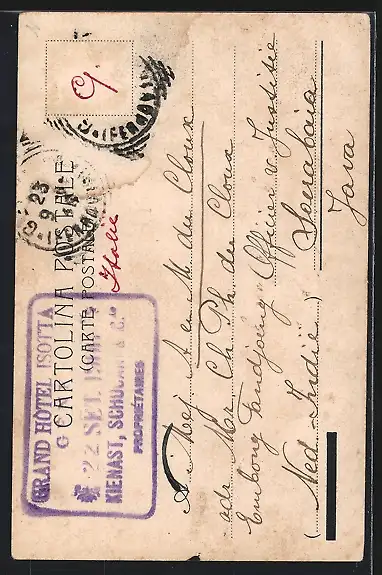 9
23
9
CARTOLINA POSTALE
(CARTE POSTALE
Italië
GRAND HÔTEL ISOTTA
G
22 SET. 19
KIENAST, SCHUCANI & C.ie
PROPRIÉTAIRES
A Mej. A en M du Cloux
adr Mr Ch Ph du Cloux
Embong Tandjoeng Officier v. Justitie
Soerabaia
(Ned-Indië) Java